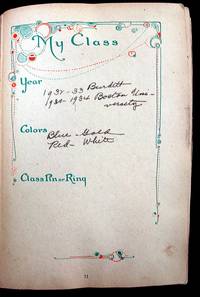 My Class
Year
1932-33 Burdett
1931-1934 Boston Uni-
versity
Colors
Blue - Gold
Red - White
Class Pin or Ring
11